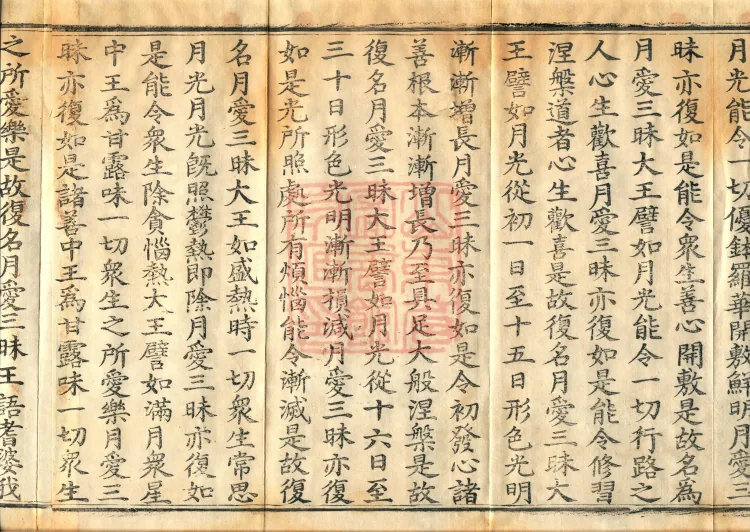 月光能令一切優鉢羅華開敷鮮明月愛三
昧亦復如是能令衆生善心開敷是故名為
月愛三昧大王譬如月光能令一切行路之
人心生歡喜月愛三昧亦復如是能令修習
涅槃道者心生歡喜是故復名月愛三昧大
王譬如月光從初一日至十五日形色光明
漸漸增長月愛三昧亦復如是令初發心諸
善根本漸漸增長乃至具足大般涅槃是故
復名月愛三昧大王譬如月光從十六日至
三十日形色光明漸漸損減月愛三昧亦復
如是光所照處所有煩惱能令漸減是故復
名月愛三昧大王如盛熱時一切衆生常思
月光月光既照鬱熱即除月愛三昧亦復如
是能令衆生除貪惱熱大王譬如滿月衆星
中王為甘露味一切衆生之所愛樂月愛三
昧亦復如是諸善中王為甘露味一切衆生
之所愛樂是故復名月愛三昧王語耆婆我